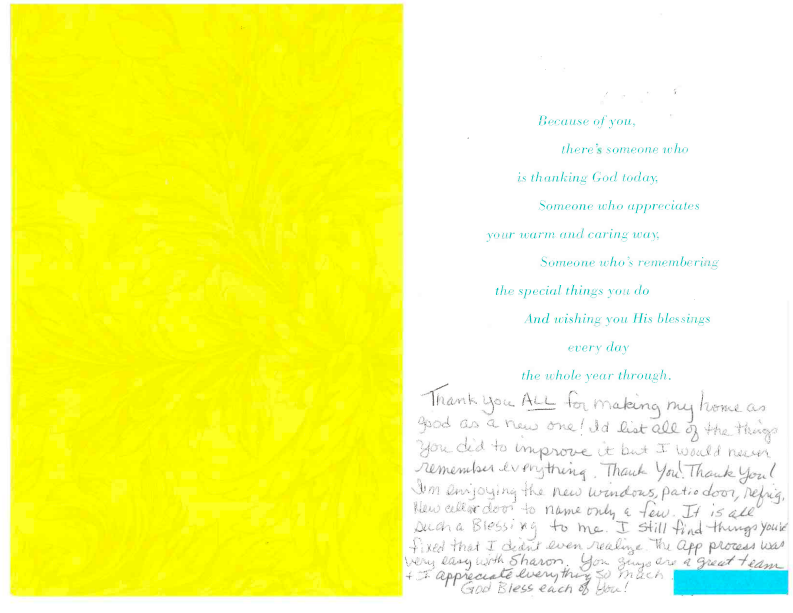 Because of you,
there's someone who
is thanking God today,
Someone who appreciates
your warm and caring way,
Someone who's remembering
the special things you do
And wishing you His blessings
every day
the whole year through.
Thank you ALL for making my home as
good as a new one! I'd list all of the things
you did to improve it but I would never
remember everything. Thank You! Thank You!
I'm enjoying the new windows, patio door, refrig.
New cellar door to name only a few. It is all
such a Blessing to me. I still find things you've
fixed that I didn't even realize. The app process was
very easy with Sharon. You guys are a great team
+ I appreciate everything so much.
God Bless each of You!